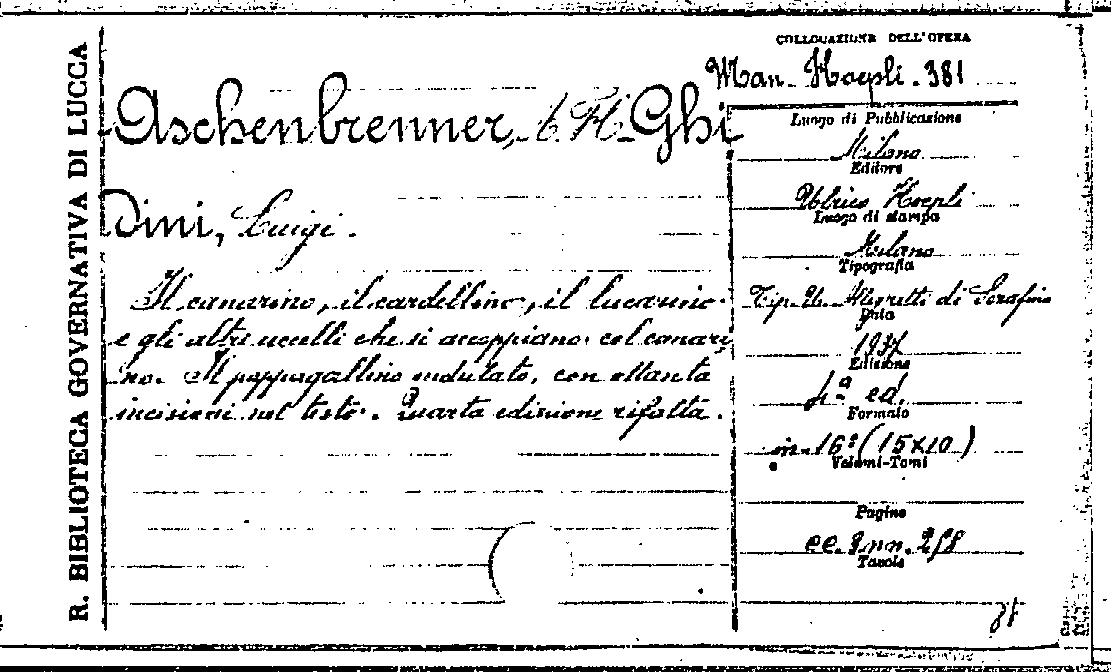 R. BIBLIOTECA GOVERNATIVA DI LUCCA
COLLOCAZIONE DELL'OPERA
Man. Hoepli. 381
Aschenbrenner, C. H. Ghi
dini, Luigi.
Il canarino, il cardellino, il lucarino
e gli altri uccelli che si accoppiano col canari
no. Il pappagallino ondulato, con ottanta
incisioni nel testo. Quarta edizione rifatta.
Luogo di Pubblicazione
Milano
Editore
Ulrico Hoepli
Luogo di stampa
Milano
Tipografia
Tip. U. Allegretti di Serafino
Data
Edizione
4ª ed.
Formato
in-16º (15x10)
Volumi-Tomi
Pagine
Tavole